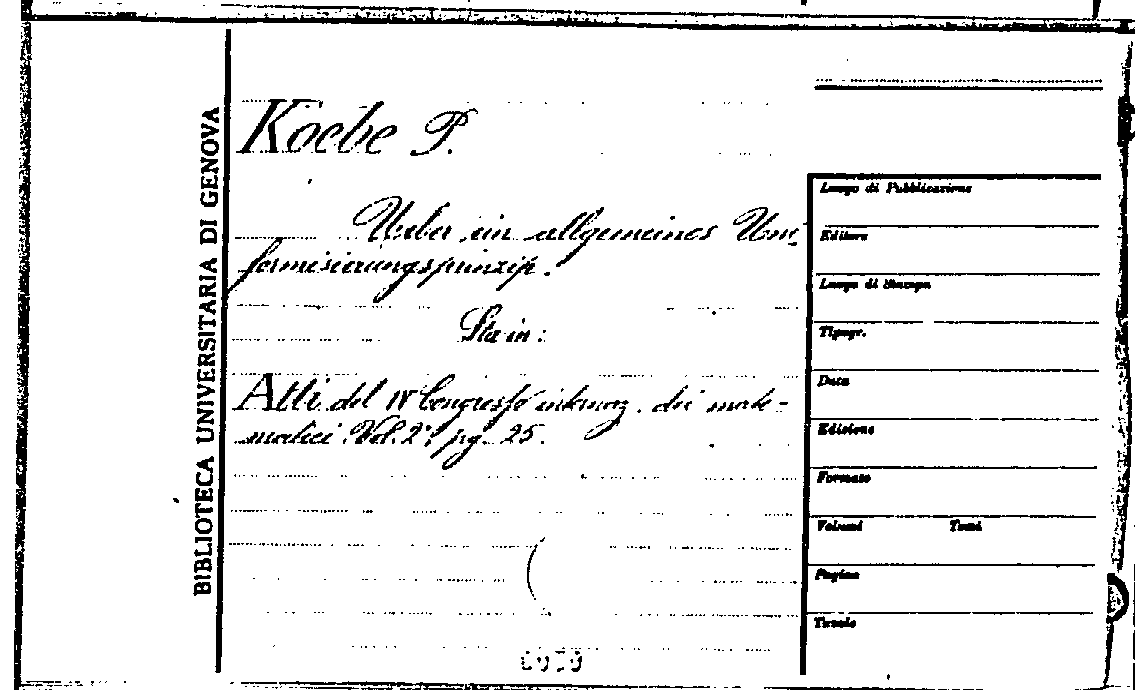 BIBLIOTECA UNIVERSITARIA DI GENOVA
Koebe P.
Ueber ein allgemeines Uni-
formisierungsprinzip.
Sta in:
Atti del IV Congresso internaz. dei mate-
matici. Vol. 2°, pg. 25.
Luogo di Pubblicazione
Editore
Luogo di Stampa
Tipogr.
Data
Edizione
Formato
Volumi Tomi
Pagine
Tavole